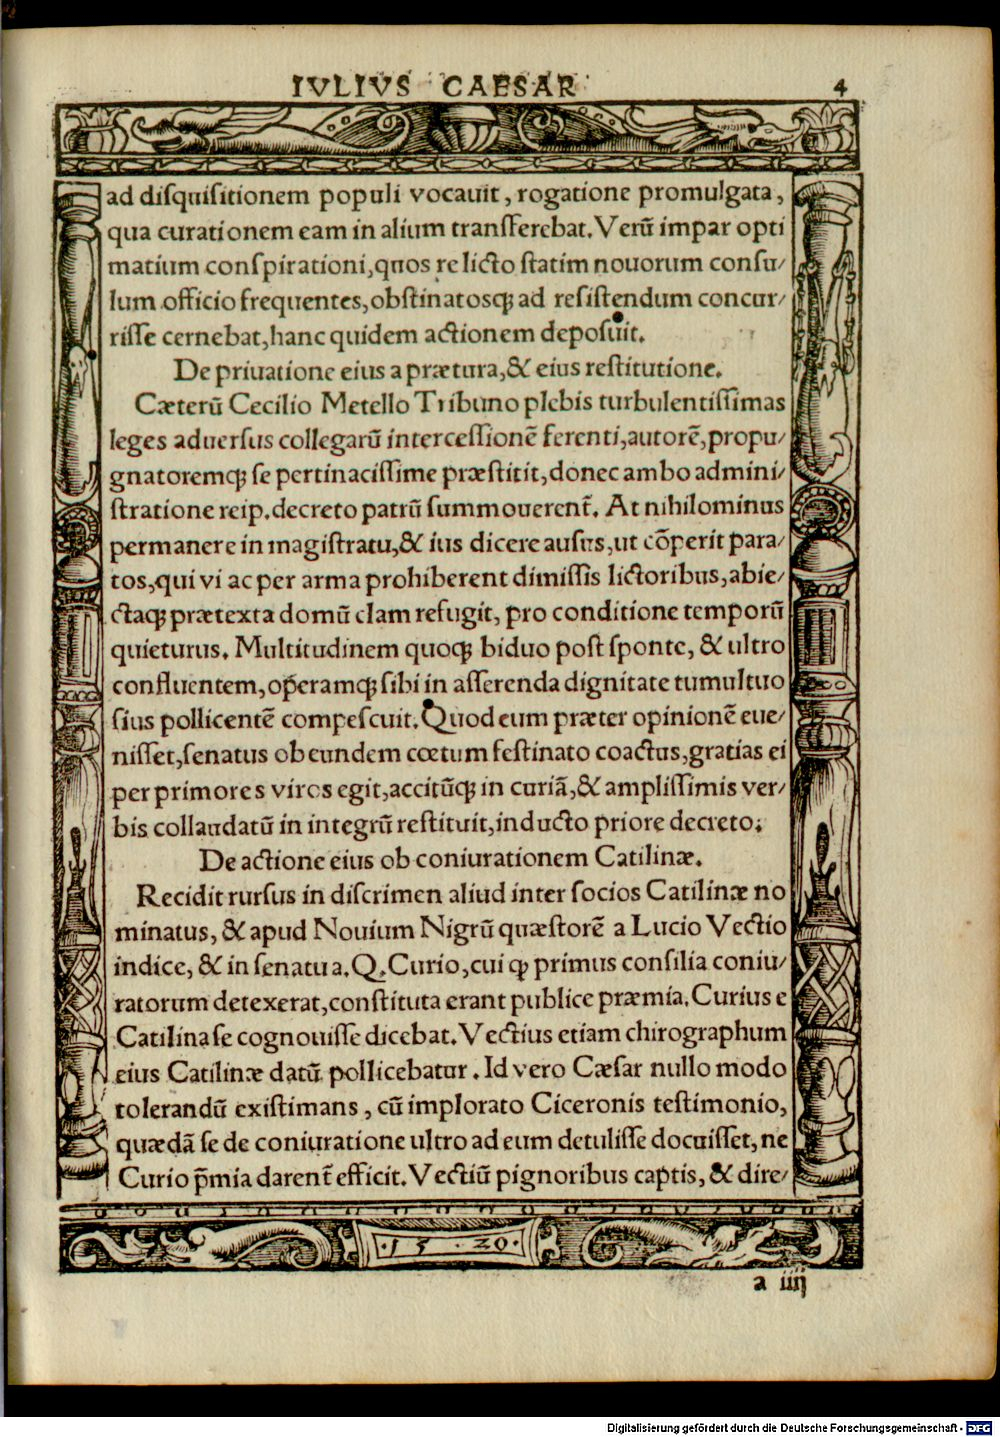 IVLIVS CAESAR
4
ad disquisitionem populi vocauit, rogatione promulgata,
qua curationem eam in alium transferebat. Verũ impar opti
matium conspirationi, quos relicto statim nouorum consu/
lum officio frequentes, obstinatosqȝ ad resistendum concur/
risse cernebat, hanc quidem actionem deposuit.
De priuatione eius a prætura, & eius restitutione.
Cæterũ Cecilio Metello Tribuno plebis turbulentissimas
leges aduersus collegarũ intercessionẽ ferenti, autorẽ, propu/
gnatoremqȝ se pertinacissime præstitit, donec ambo admini/
stratione reip. decreto patrũ summouerent̃. At nihilominus
permanere in magistratu, & ius dicere ausus, ut cõperit para/
tos, qui vi ac per arma prohiberent dimissis lictoribus, abie/
ctaqȝ prætexta domũ clam refugit, pro conditione temporũ
quieturus. Multitudinem quoqȝ biduo post sponte, & ultro
confluentem, oꝑeramqȝ sibi in asserenda dignitate tumultuo
sius pollicentẽ compescuit. Quod eum præter opinionẽ eue/
nisset, senatus ob eundem cœtum festinato coactus, gratias ei
per primores viros egit, accitũqȝ in curiã, & amplissimis ver/
bis collaudatũ in integrũ restituit, inducto priore decreto.
De actione eius ob coniurationem Catilinæ.
Recidit rursus in discrimen aliud inter socios Catilinæ no
minatus, & apud Nouium Nigrũ quæstorẽ a Lucio Vectio
indice, & in senatu a. Q. Curio, cui qȝ primus consilia coniu/
ratorum detexerat, constituta erant publice præmia. Curius e
Catilina se cognouisse dicebat. Vectius etiam chirographum
eius Catilinæ datũ pollicebatur. Id vero Cæsar nullo modo
tolerandũ existimans, cũ implorato Ciceronis testimonio,
quædã se de coniuratione ultro ad eum detulisse docuisset, ne
Curio p̃mia darent̃ efficit. Vectiũ pignoribus captis, & dire/
·15·20·
a iiij
Digitalisierung gefördert durch die Deutsche Forschungsgemeinschaft - DFG